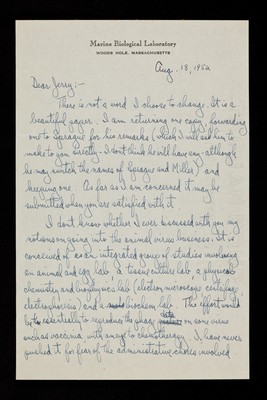 Marine Biological Laboratory
WOODS HOLE, MASSACHUSETTS
Aug. 18, 1952
Dear Jerry:-
There is not a word I choose to change. It is a
beautiful paper. I am returning one copy, forwarding
one to Sprague for his remarks (which I will ask him to
make to you directly - I don't think he will have any - although
he may switch the names of Sprague and Miller) and
keeping one. As far as I am concerned it may be
submitted when you are satisfied with it.
I don't know whether I ever discussed with you my
notions on going into the animal virus business. It is
conceived of as an integrated group of studies involving
an animal and egg lab, a tissue culture lab, a physical
chemistry and biophysics lab (electron microscope, centrifuge,
electrophoresis) and a biochem lab. The effort would
be essentially to reproduce the phage data on some virus
such as vaccinia, with an eye to chemotherapy. I have never
pushed it for fear of the administrative chores involved